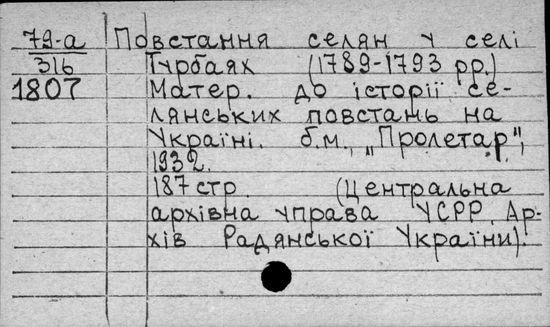 79-а Повстання селян у селі
316 Турбаях (1789-1793 рр.)
1807 Матер. до історії се-
лянських повстань на
Україні. б.м., "Пролетар",
1932.
187 стр. (Центральна
архівна управа УСРР. Ар-
хів Радянської України).